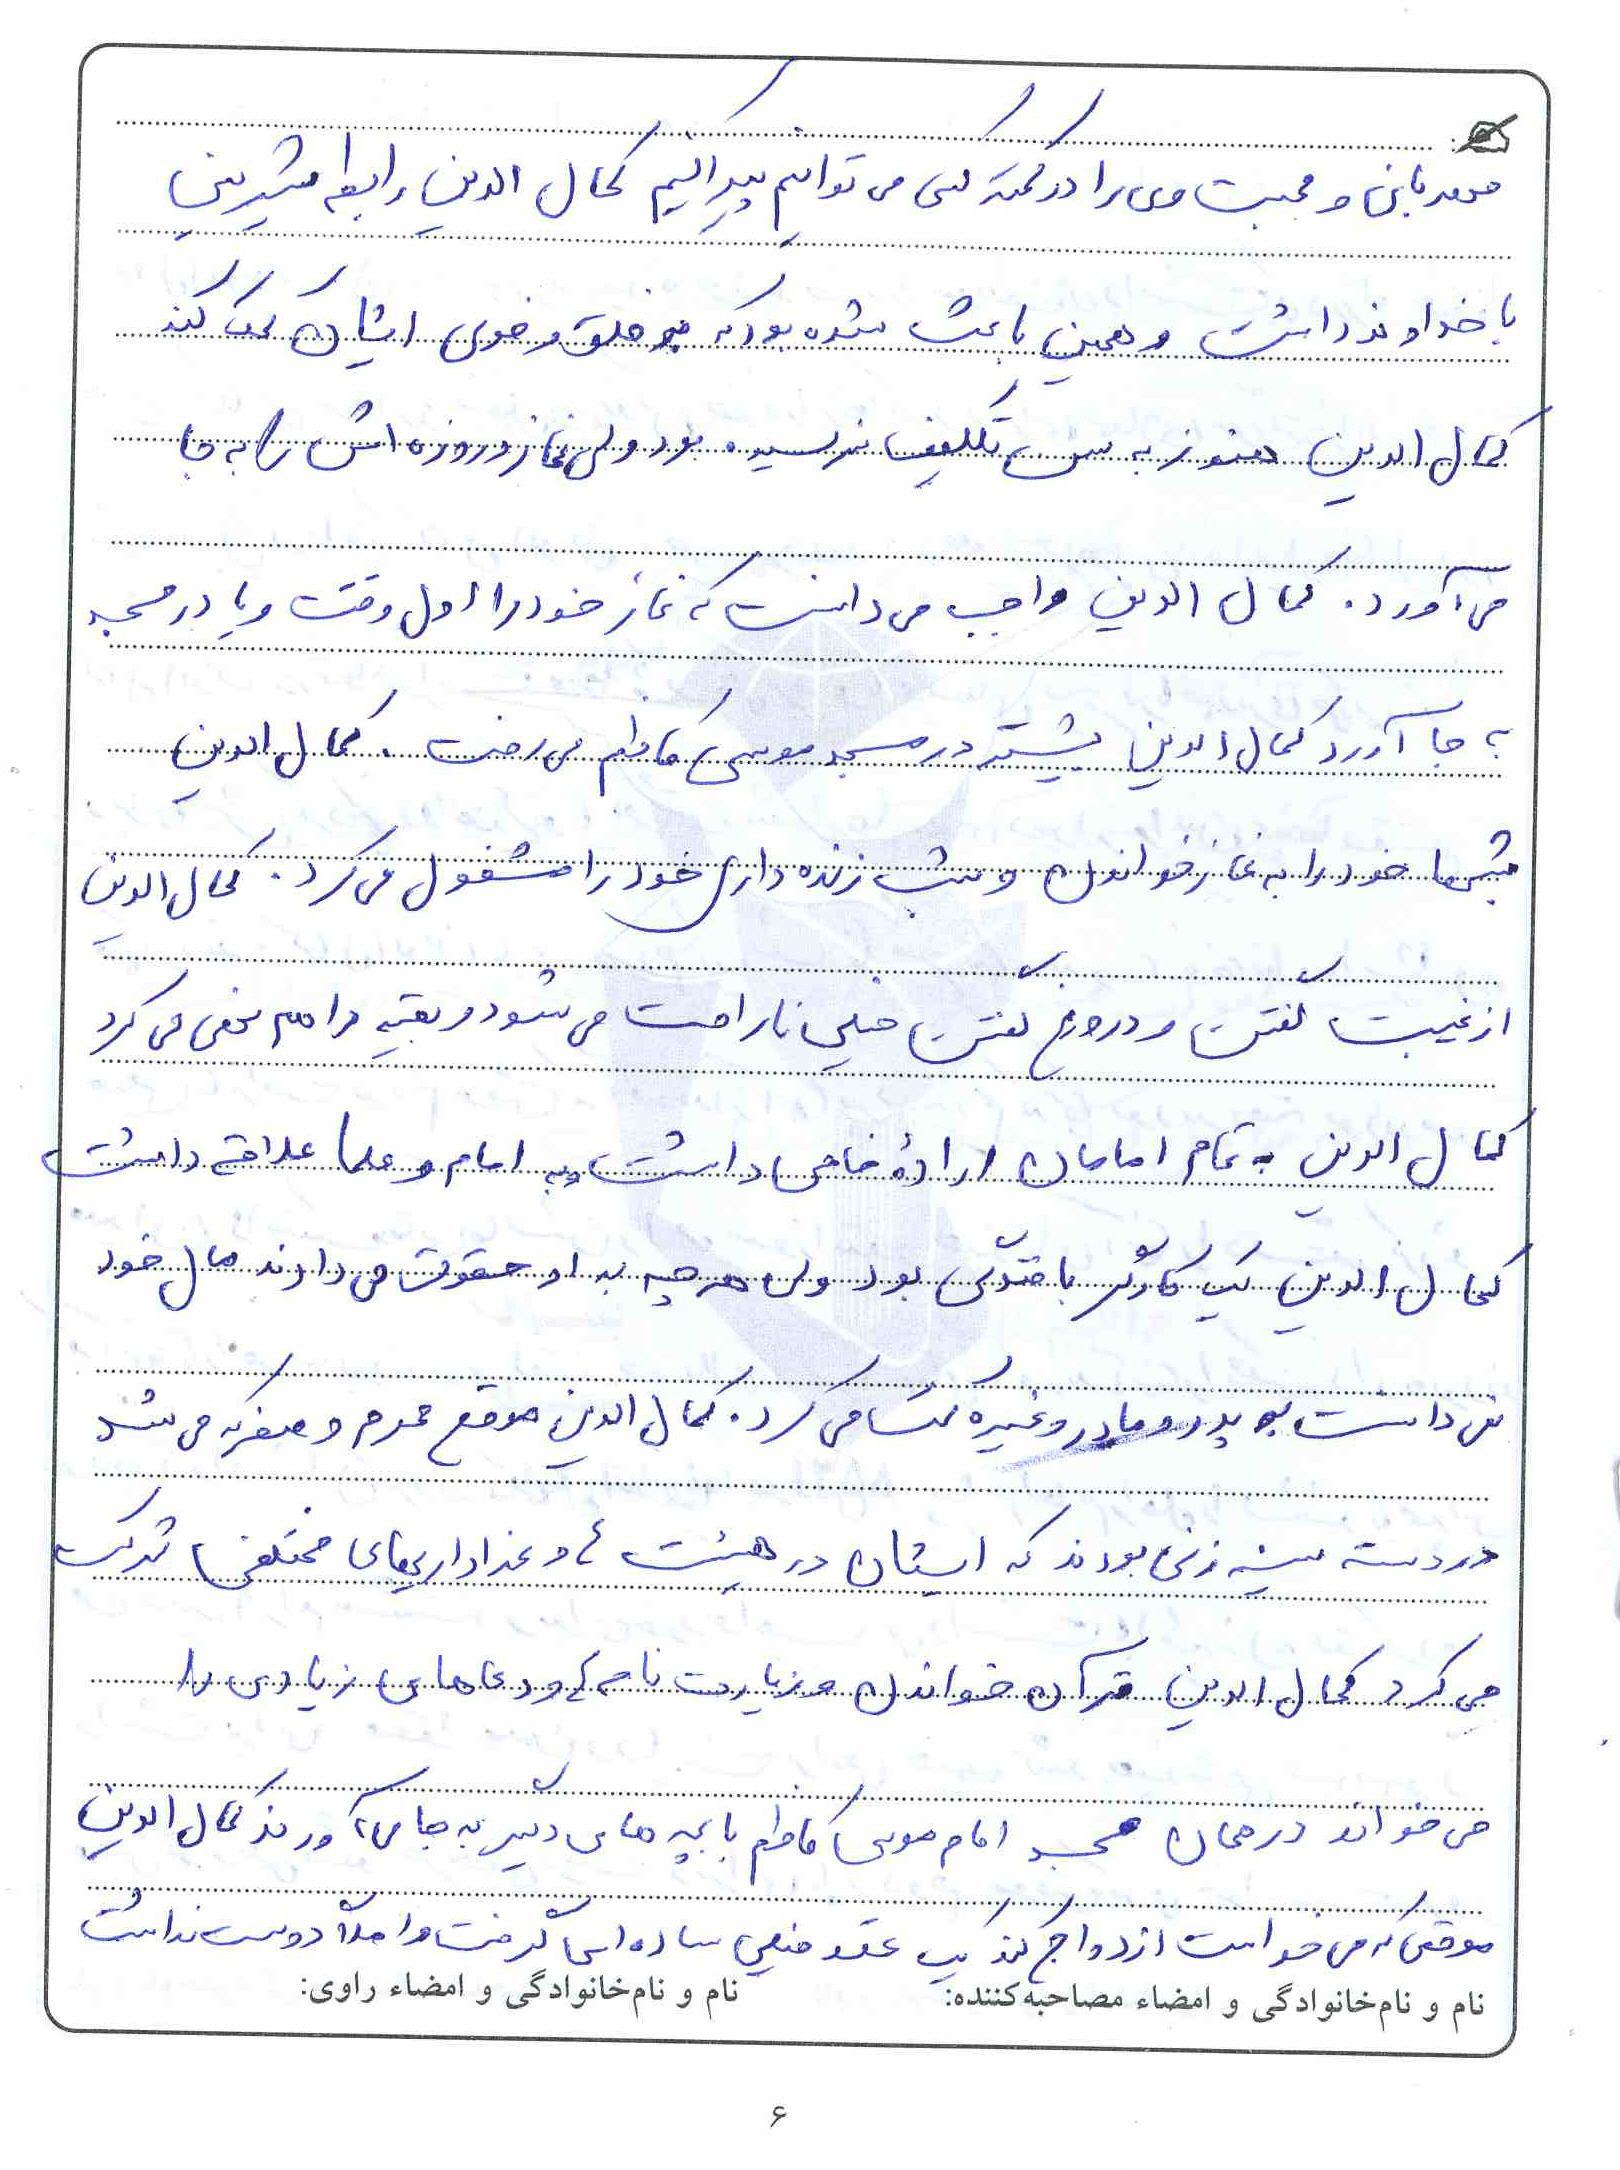 مهربانی و محبت وی را در کمتر کسی می توانیم پیدا کنیم کمال الدین رابطه شیرینی
با خداوند داشت و همین باعث شده بود که به خلق و خوی ایشان کمک کند
کمال الدین هنوز به سن تکلیف نرسیده بود ولی نماز و روزه اش را به جا
می آورد. کمال الدین واجب می دانست که نماز خود را اول وقت و یا در مسجد
به جا آورد کمال الدین بیشتر در مسجد موسی کاظم می رفت. کمال الدین
شبها خود را به نماز خواندن و شب زنده داری خود را مشغول می کرد. کمال الدین
از غیبت گفتن و دروغ گفتن خیلی ناراحت می شود و بقیه را هم نحی می کرد
کمال الدین به تمام امامان ارادهٔ خاصی داشت و به امام و علما علاقه داشت
کمال الدین یک کارگر باختگی بود ولی هر چه به او حقوق می دادند مال خود
نمی دانست به پدر و مادر و غیره کمک می کرد. کمال الدین موقع محرم و صفر که می شد
در دسته سینه زنی بودند که ایشان در هیئت ها و عذاداریهای مختلفی شرکت
می کرد کمال الدین قرآن خواندن و زیارت نامه ها و دعاهای زیادی را
می خواند در همان مسجد امام موسی کاظم با بچه های دیگر به جا می آورند کمال الدین
موقعی که می خواست ازدواج کند یک عقد خیلی ساده ای گرفت و اصلاً دوست نداشت
نام و نام‌خانوادگی و امضاء مصاحبه‌کننده: نام و نام‌خانوادگی و امضاء راوی:
۶